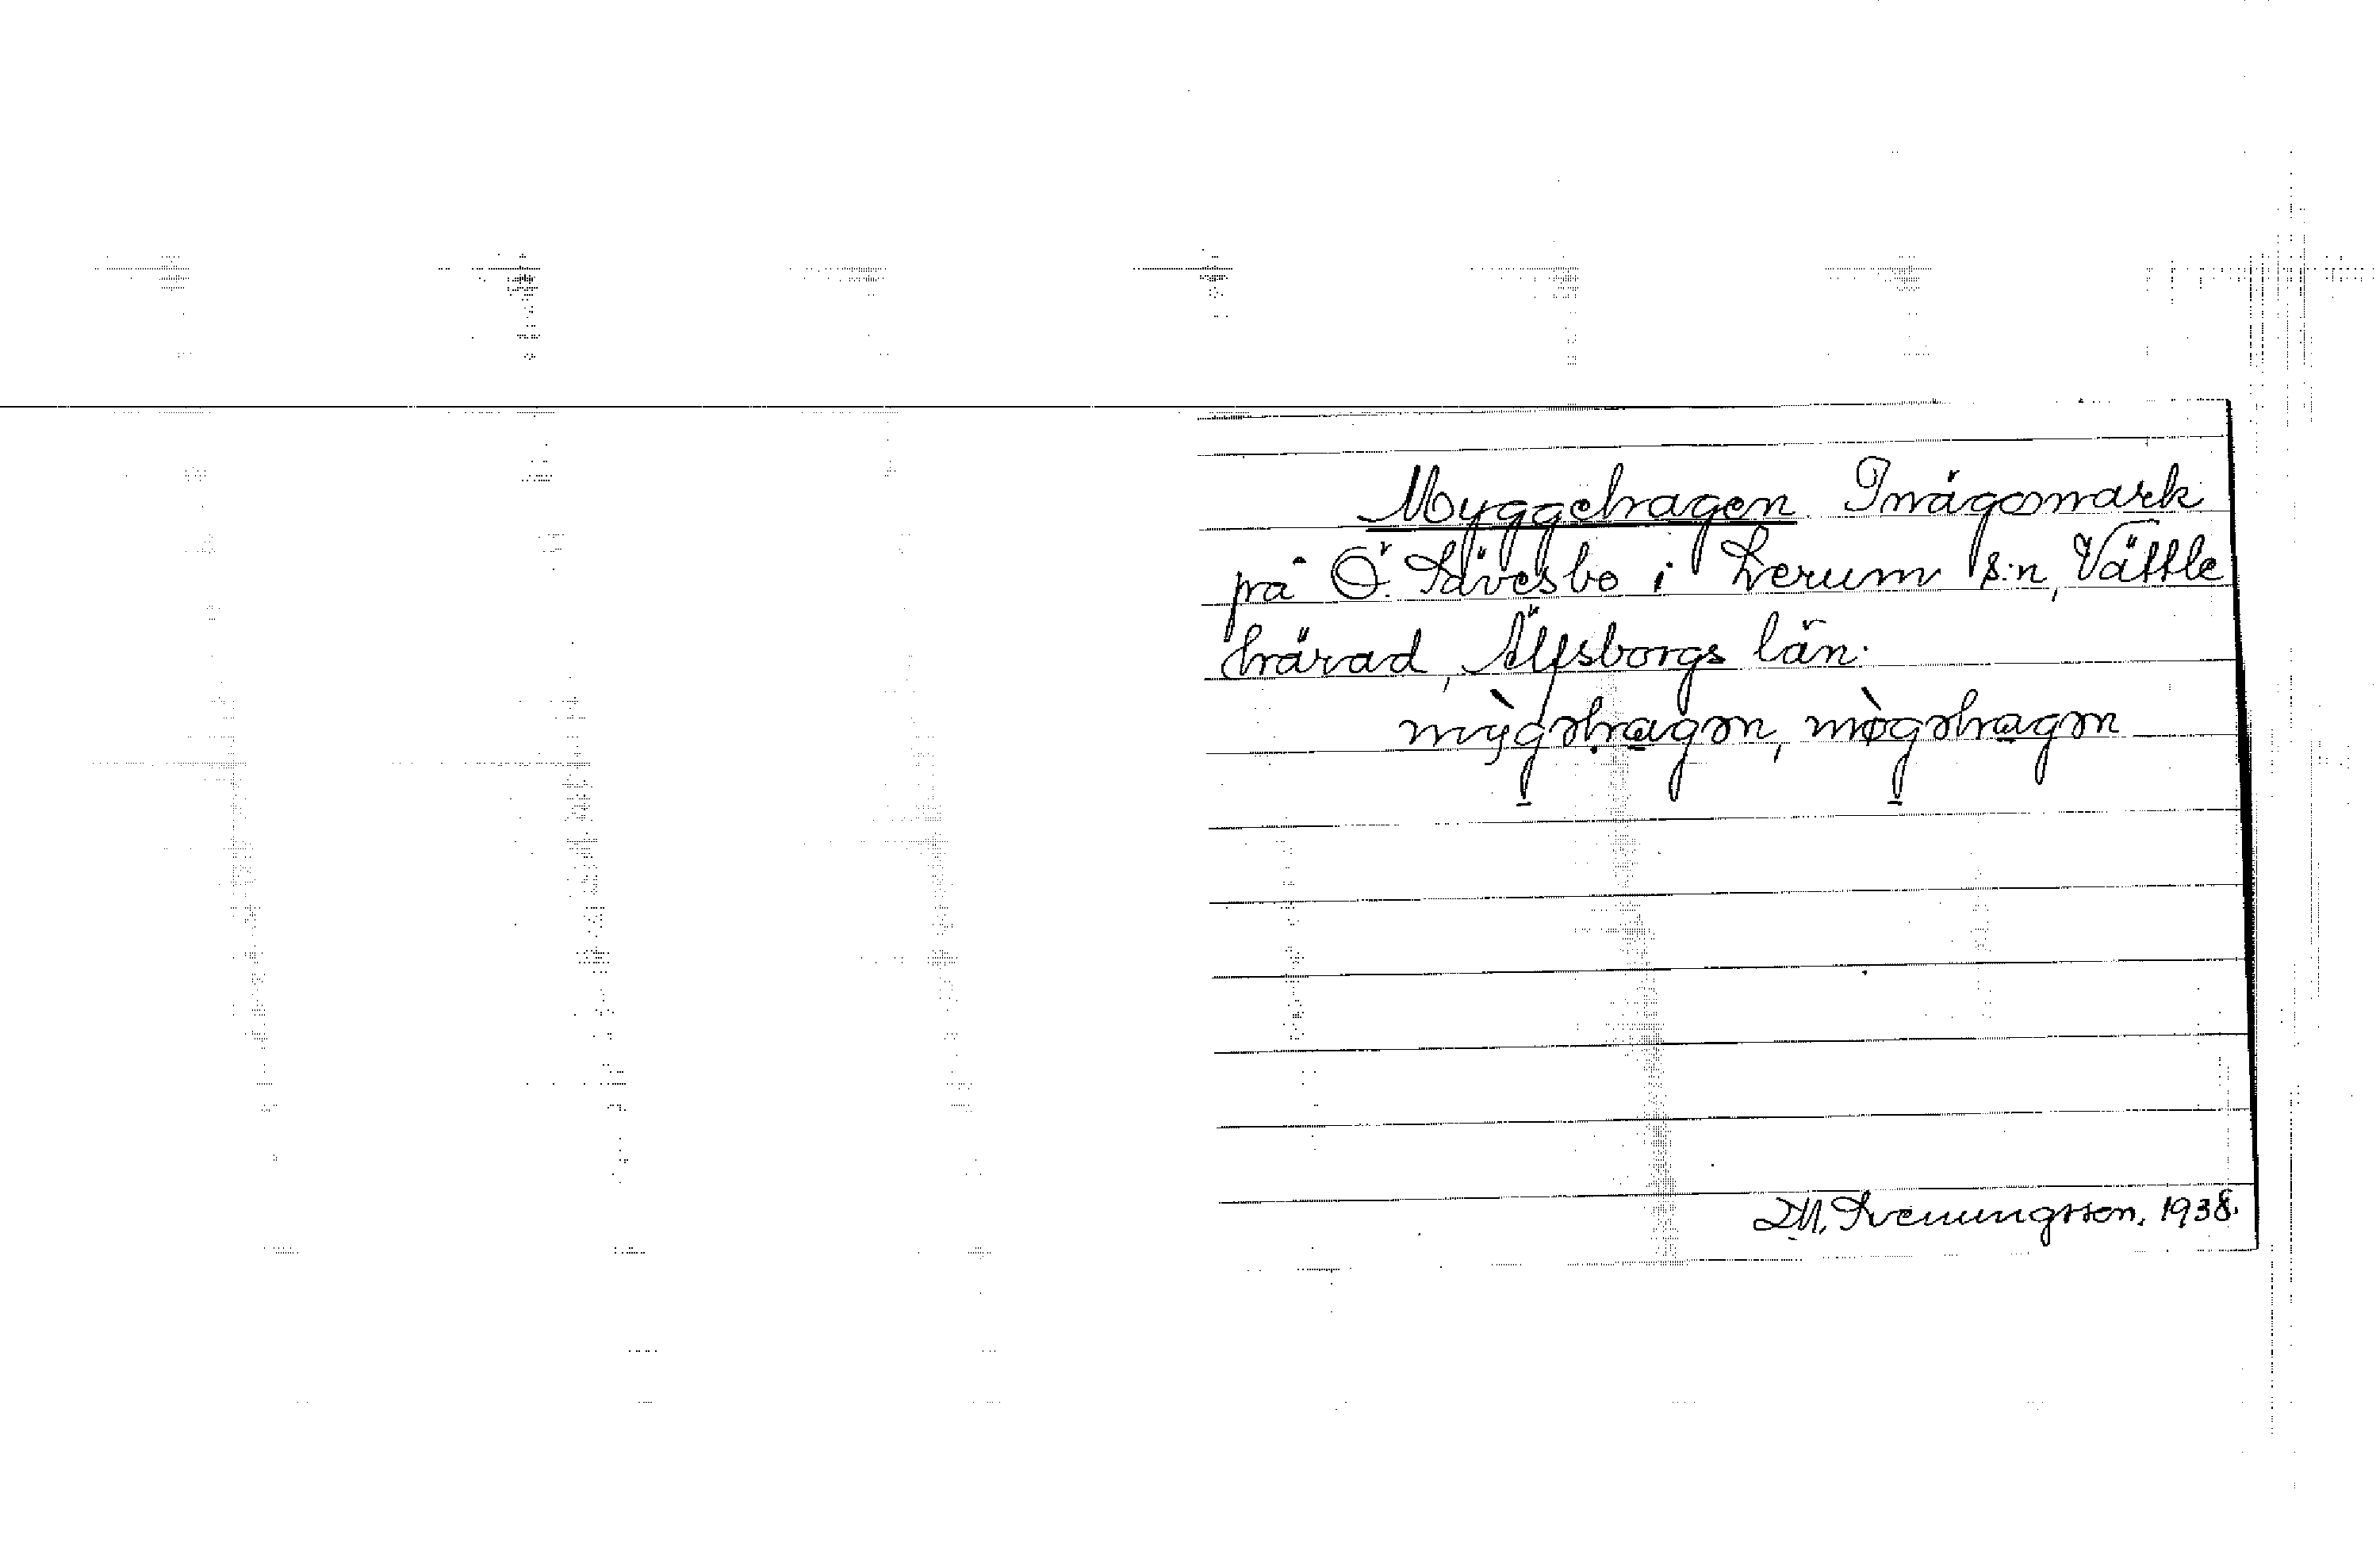 Myggehagen. Inägomark
på Ö. Sävesbo i Lerum s:n, Vättle
härad, Älfsborgs län.
mỳgəhagən, mø̀gəhagən
D.M. Svenungsson. 1938.